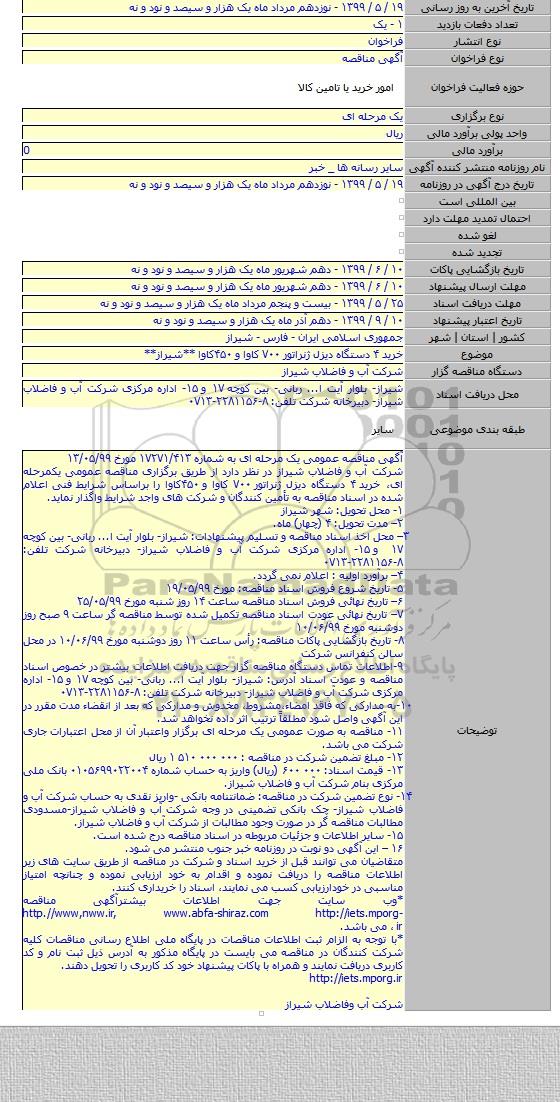 تاریخ آخرین به روز رسانی ۱۹ / ۵ / ۱۳۹۹ - نوزدهم مرداد ماه یک هزار و سیصد و نود و نه
تعداد دفعات بازدید ۱ - یک
نوع انتشار فراخوان
نوع فراخوان آگهی مناقصه
حوزه فعالیت فراخوان امور خرید یا تامین کالا
نوع برگزاری یک مرحله ای
واحد پولی برآورد مالی ریال
برآورد مالی 0
نام روزنامه منتشر کننده آگهی سایر رسانه ها _ خبر
تاریخ درج آگهی در روزنامه ۱۹ / ۵ / ۱۳۹۹ - نوزدهم مرداد ماه یک هزار و سیصد و نود و نه
بین المللی است
احتمال تمدید مهلت دارد
لغو شده
تجدید شده
تاریخ بازگشایی پاکات ۱۰ / ۶ / ۱۳۹۹ - دهم شهریور ماه یک هزار و سیصد و نود و نه
مهلت ارسال پیشنهاد ۱۰ / ۶ / ۱۳۹۹ - دهم شهریور ماه یک هزار و سیصد و نود و نه
مهلت دریافت اسناد ۲۵ / ۵ / ۱۳۹۹ - بیست و پنجم مرداد ماه یک هزار و سیصد و نود و نه
تاریخ اعتبار پیشنهاد ۱۰ / ۹ / ۱۳۹۹ - دهم آذر ماه یک هزار و سیصد و نود و نه
کشور | استان | شهر جمهوری اسلامی ایران - فارس - شیراز
موضوع خرید ۴ دستگاه دیزل ژنراتور ۷۰۰ کاوا و ۴۵۰کاوا **شیراز**
دستگاه مناقصه گزار شرکت آب و فاضلاب شیراز
محل دریافت اسناد شیراز- بلوار آیت ا... ربانی- بین کوچه ۱۷ و ۱۵- اداره مرکزی شرکت آب و فاضلاب
شیراز- دبیرخانه شرکت تلفن: ۸-۲۲۸۱۱۵۶-۰۷۱۳
طبقه بندی موضوعی سایر
توضیحات
آگهی مناقصه عمومی یک مرحله ای به شماره ۱۷۲۷۱/۴۱۳ مورخ ۱۳/۰۵/۹۹
شرکت آب و فاضلاب شیراز در نظر دارد از طریق برگزاری مناقصه عمومی یکمرحله
ای، خرید ۴ دستگاه دیزل ژنراتور ۷۰۰ کاوا و ۴۵۰کاوا را براساس شرایط فنی اعلام
شده در اسناد مناقصه به تأمین کنندگان و شرکت های واجد شرایط واگذار نماید.
۱- محل تحویل: شهر شیراز
۲– مدت تحویل: ۴ (چهار) ماه.
۳– محل اخذ اسناد مناقصه و تسلیم پیشنهادات: شیراز- بلوار آیت ا... ربانی- بین کوچه
۱۷ و ۱۵- اداره مرکزی شرکت آب و فاضلاب شیراز- دبیرخانه شرکت تلفن:
۸-۲۲۸۱۱۵۶-۰۷۱۳
۴– برآورد اولیه : اعلام نمی گردد.
۵– تاریخ شروع فروش اسناد مناقصه: مورخ ۱۹/۰۵/۹۹
۶– تاریخ نهائی فروش اسناد مناقصه ساعت ۱۴ روز شنبه مورخ ۲۵/۰۵/۹۹
۷– تاریخ نهائی عودت اسناد مناقصه تکمیل شده توسط مناقصه گر ساعت ۹ صبح روز
دوشنبه مورخ ۱۰/۰۶/۹۹
۸- تاریخ بازگشایی پاکات مناقصه: رأس ساعت ۱۱ روز دوشنبه مورخ ۱۰/۰۶/۹۹ در محل
سالن کنفرانس شرکت
۹-اطلاعات تماس دستگاه مناقصه گزار جهت دریافت اطلاعات بیشتر در خصوص اسناد
مناقصه و عودت اسناد آدرس: شیراز- بلوار آیت ا... ربانی- بین کوچه ۱۷ و ۱۵- اداره
مرکزی شرکت آب و فاضلاب شیراز- دبیرخانه شرکت تلفن: ۸-۲۲۸۱۱۵۶-۰۷۱۳
۱۰-به مدارکی که فاقد امضاء،مشروط، مخدوش و مدارکی که بعد از انقضاء مدت مقرر در
این آگهی واصل شود مطلقاً ترتیب اثر داده نخواهد شد.
۱۱- مناقصه به صورت عمومی یک مرحله ای برگزار واعتبار آن از محل اعتبارات جاری
شرکت می باشد.
۱۲- مبلغ تضمین شرکت در مناقصه : ۰۰۰ ۰۰۰ ۵۱۰ ۱ ریال
۱۳- قیمت اسناد: ۰۰۰ ۶۰۰ (ریال) واریز به حساب شماره ۰۱۰۵۶۹۹۰۲۲۰۰۴ بانک ملی
مرکزی بنام شرکت آب و فاضلاب شیراز.
۱۴- نوع تضمین شرکت در مناقصه: ضمانتنامه بانکی -واریز نقدی به حساب شرکت آب و
فاضلاب شیراز- چک بانکی تضمینی در وجه شرکت آب و فاضلاب شیراز-مسدودی
مطالبات مناقصه گر در صورت وجود مطالبات از شرکت آب و فاضلاب شیراز.
۱۵- سایر اطلاعات و جزئیات مربوطه در اسناد مناقصه درج شده است.
۱۶ – این آگهی دو نوبت در روزنامه خبر جنوب منتشر می شود.
متقاضیان می توانند قبل از خرید اسناد و شرکت در مناقصه از طریق سایت های زیر
اطلاعات مناقصه را دریافت نموده و اقدام به خود ارزیابی نموده و چنانچه امتیاز
مناسبی در خودارزیابی کسب می نمایند، اسناد را خریداری کنند.
*وب سایت جهت اطلاعات بیشترآگهی مناقصه
http://www,nww.ir, www.abfa-shiraz.com http://iets.mporg-
ir، می باشد.
*با توجه به الزام ثبت اطلاعات مناقصات در پایگاه ملی اطلاع رسانی مناقصات کلیه
شرکت کنندگان در مناقصه می بایست در پایگاه مذکور به آدرس ذیل ثبت نام و کد
کاربری دریافت نمایند و همراه با پاکات پیشنهاد خود کد کاربری را تحویل دهند.
http://iets.mporg.ir
شرکت آب وفاضلاب شیراز